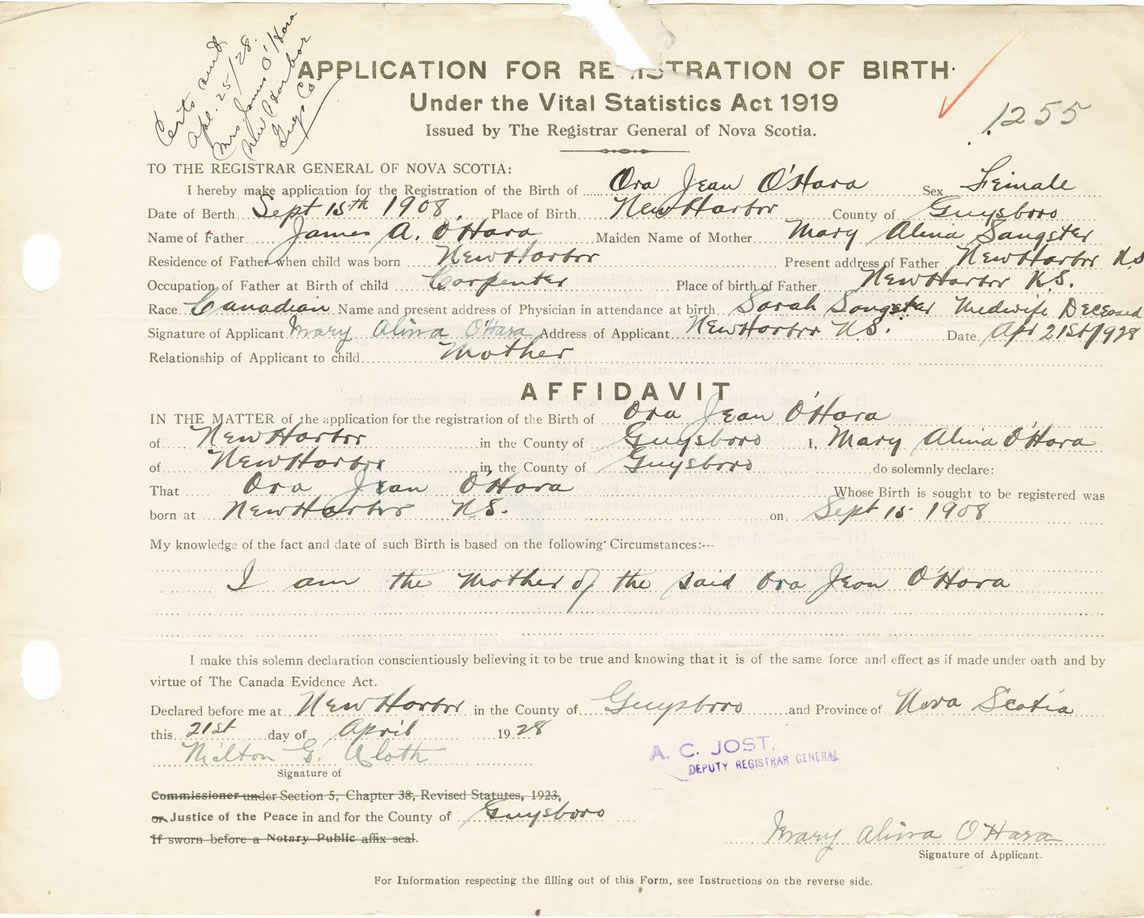 Certs sent
Apl. 25/28.
Mrs James O'Hara
New Harbor
Guys Co
APPLICATION FOR RE ISTRATION OF BIRTH
Under the Vital Statistics Act 1919
Issued by The Registrar General of Nova Scotia.
1255
TO THE REGISTRAR GENERAL OF NOVA SCOTIA:
I hereby make application for the Registration of the Birth of Ora Jean O'Hara Sex Female
Date of Berth Sept 15th 1908, Place of Birth New Harbor County of Guysboro
Name of Father James A. O'Hara Maiden Name of Mother Mary Alina Sangster
Residence of Father when child was born New Harbor Present address of Father New Harbor N.S
Occupation of Father at Birth of child Carpenter Place of birth of Father New Harbor N.S.
Race Canadian Name and present address of Physician in attendance at birth Sarah Sangster Midwife Deceased
Signature of Applicant Mary Alina O'Hara Address of Applicant New Harbor N.S. Date Apr 21st/1928
Relationship of Applicant to child Mother
AFFIDAVIT
IN THE MATTER of the application for the registration of the Birth of Ora Jean O'Hara
of New Harbor in the County of Guysboro I, Mary Alina O'Hara
of New Harbor in the County of Guysboro do solemnly declare:
That Ora Jean O'Hara Whose Birth is sought to be registered was
born at New Harbor N.S. on Sept 15 1908
My knowledge of the fact and date of such Birth is based on the following Circumstances:--
I am the Mother of the said Ora Jean O'Hara
I make this solemn declaration conscientiously believing it to be true and knowing that it is of the same force and effect as if made under oath and by
virtue of The Canada Evidence Act.
Declared before me at New Harbor in the County of Guysboro and Province of Nova Scotia
this 21st day of April 1928
Milton G.
Signature of
A. C. JOST,
DEPUTY REGISTRAR GENERAL
Commissioner under Section 5, Chapter 38, Revised Statutes, 1923,
or Justice of the Peace in and for the County of Guysboro
If sworn before a Notary Public affix seal.
Mary Alina O'Hara
Signature of Applicant.
For Information respecting the filling out of this Form, see Instructions on the reverse side.